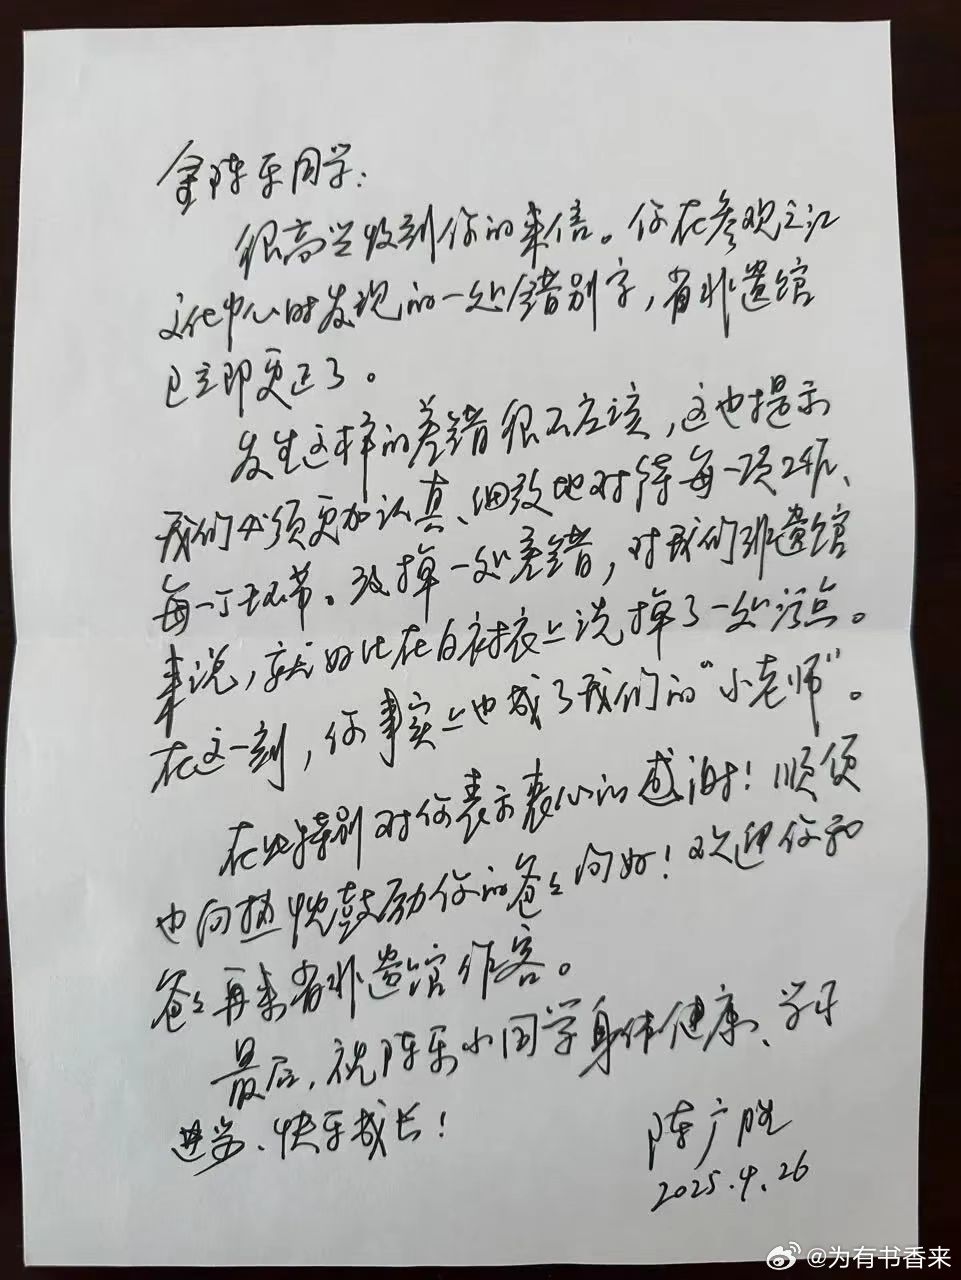 金陈乐同学：
很高兴收到你的来信。你在参观之江
文化中心时发现的一处错别字，省非遗馆
已立即更正了。
发生这样的差错很不应该，这也提示
我们必须更加认真、细致地对待每一项工作、
每一个环节。改掉一处差错，对我们非遗馆
来说，就好比在白衬衣上洗掉了一处污点。
在这一刻，你事实上也成了我们的“小老师”。
在此特别对你表示衷心的感谢！顺便
也向热忱鼓励你的爸爸问好！欢迎你和
爸爸再来省非遗馆作客。
最后，祝陈乐小同学身体健康、学习
进步、快乐成长！
陈广胜
2025.4.26
@为有书香来